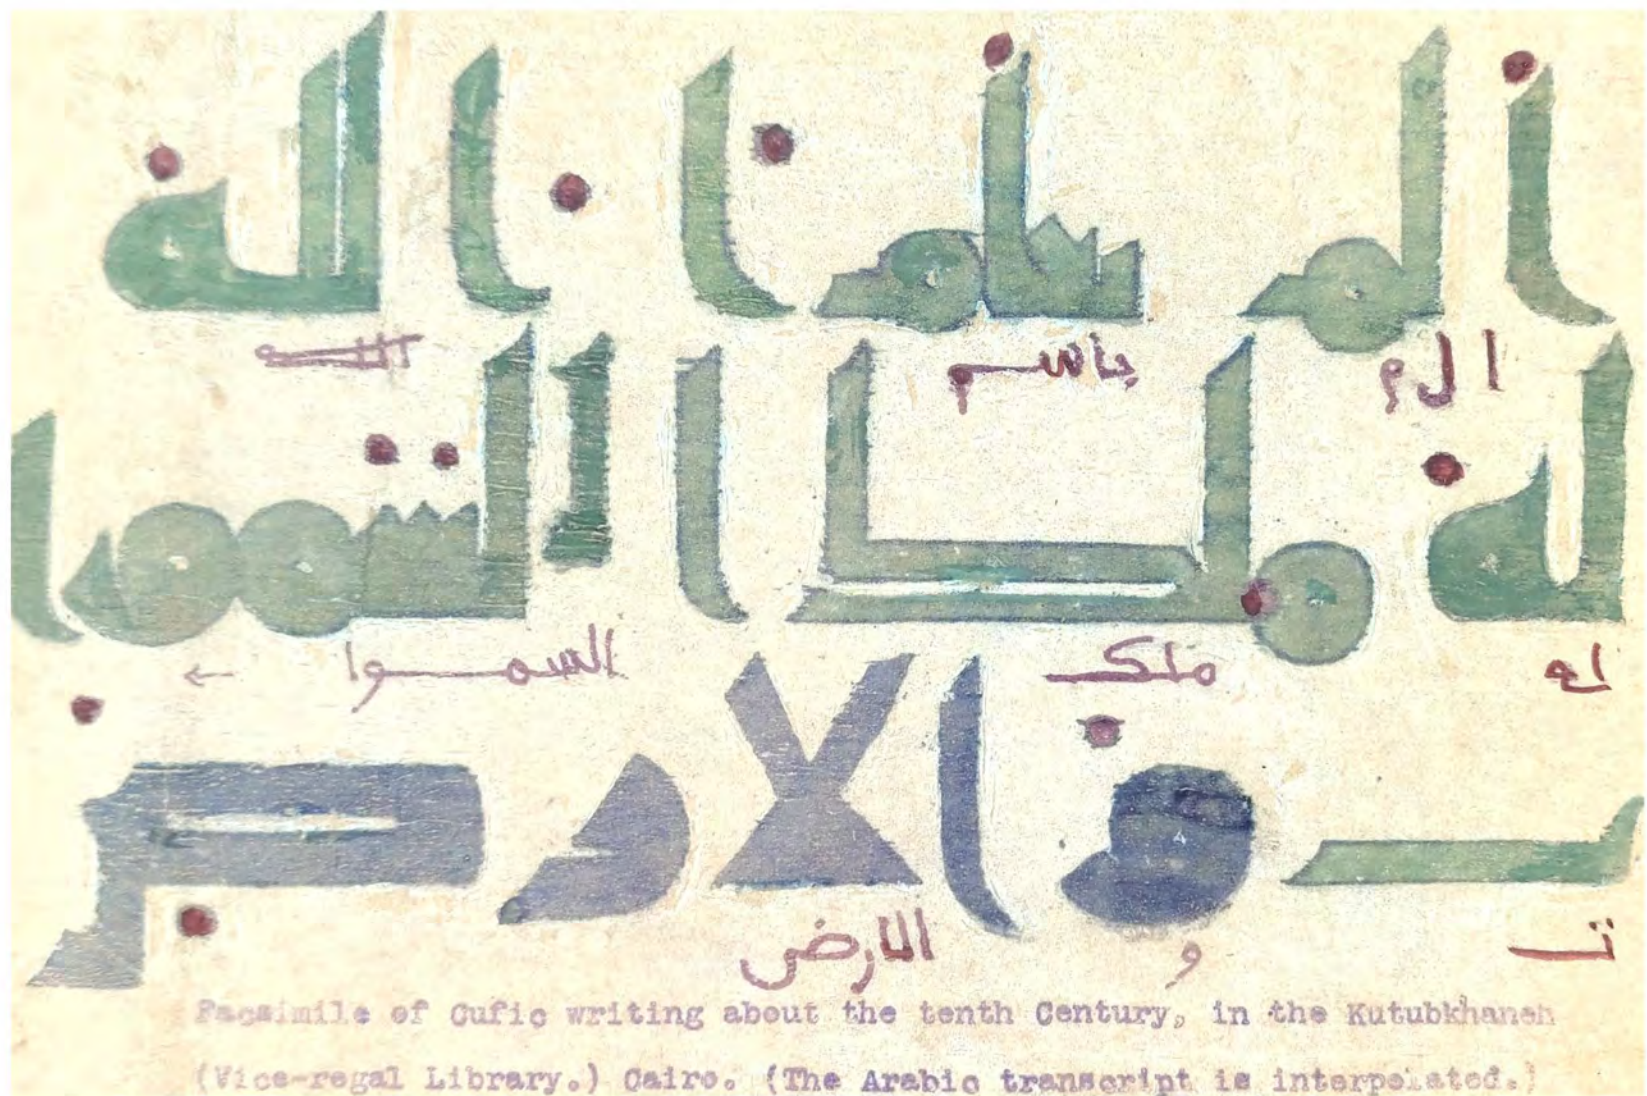 الم تعلم ان الله
ا ل م باسم الله
له ملك السموا
له ملك السموا ←
ت و الارض
ت و الارض
Facsimile of Cufic writing about the tenth Century, in the Kutubkhaneh
(Vice-regal Library.) Cairo. (The Arabic transcript is interpolated.)